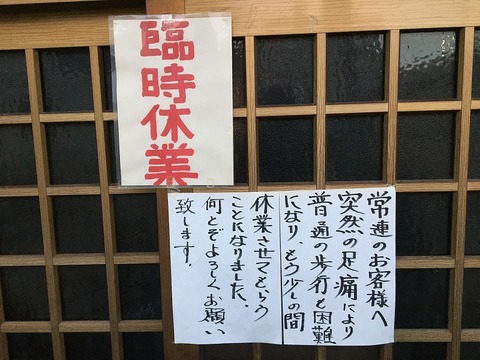 臨時休業
常連のお客様へ
突然の足痛により
普通の歩行も困難
になり、もう少しの間
休業させてもらう
ことになりました、
何とぞよろしくお願い
致します。